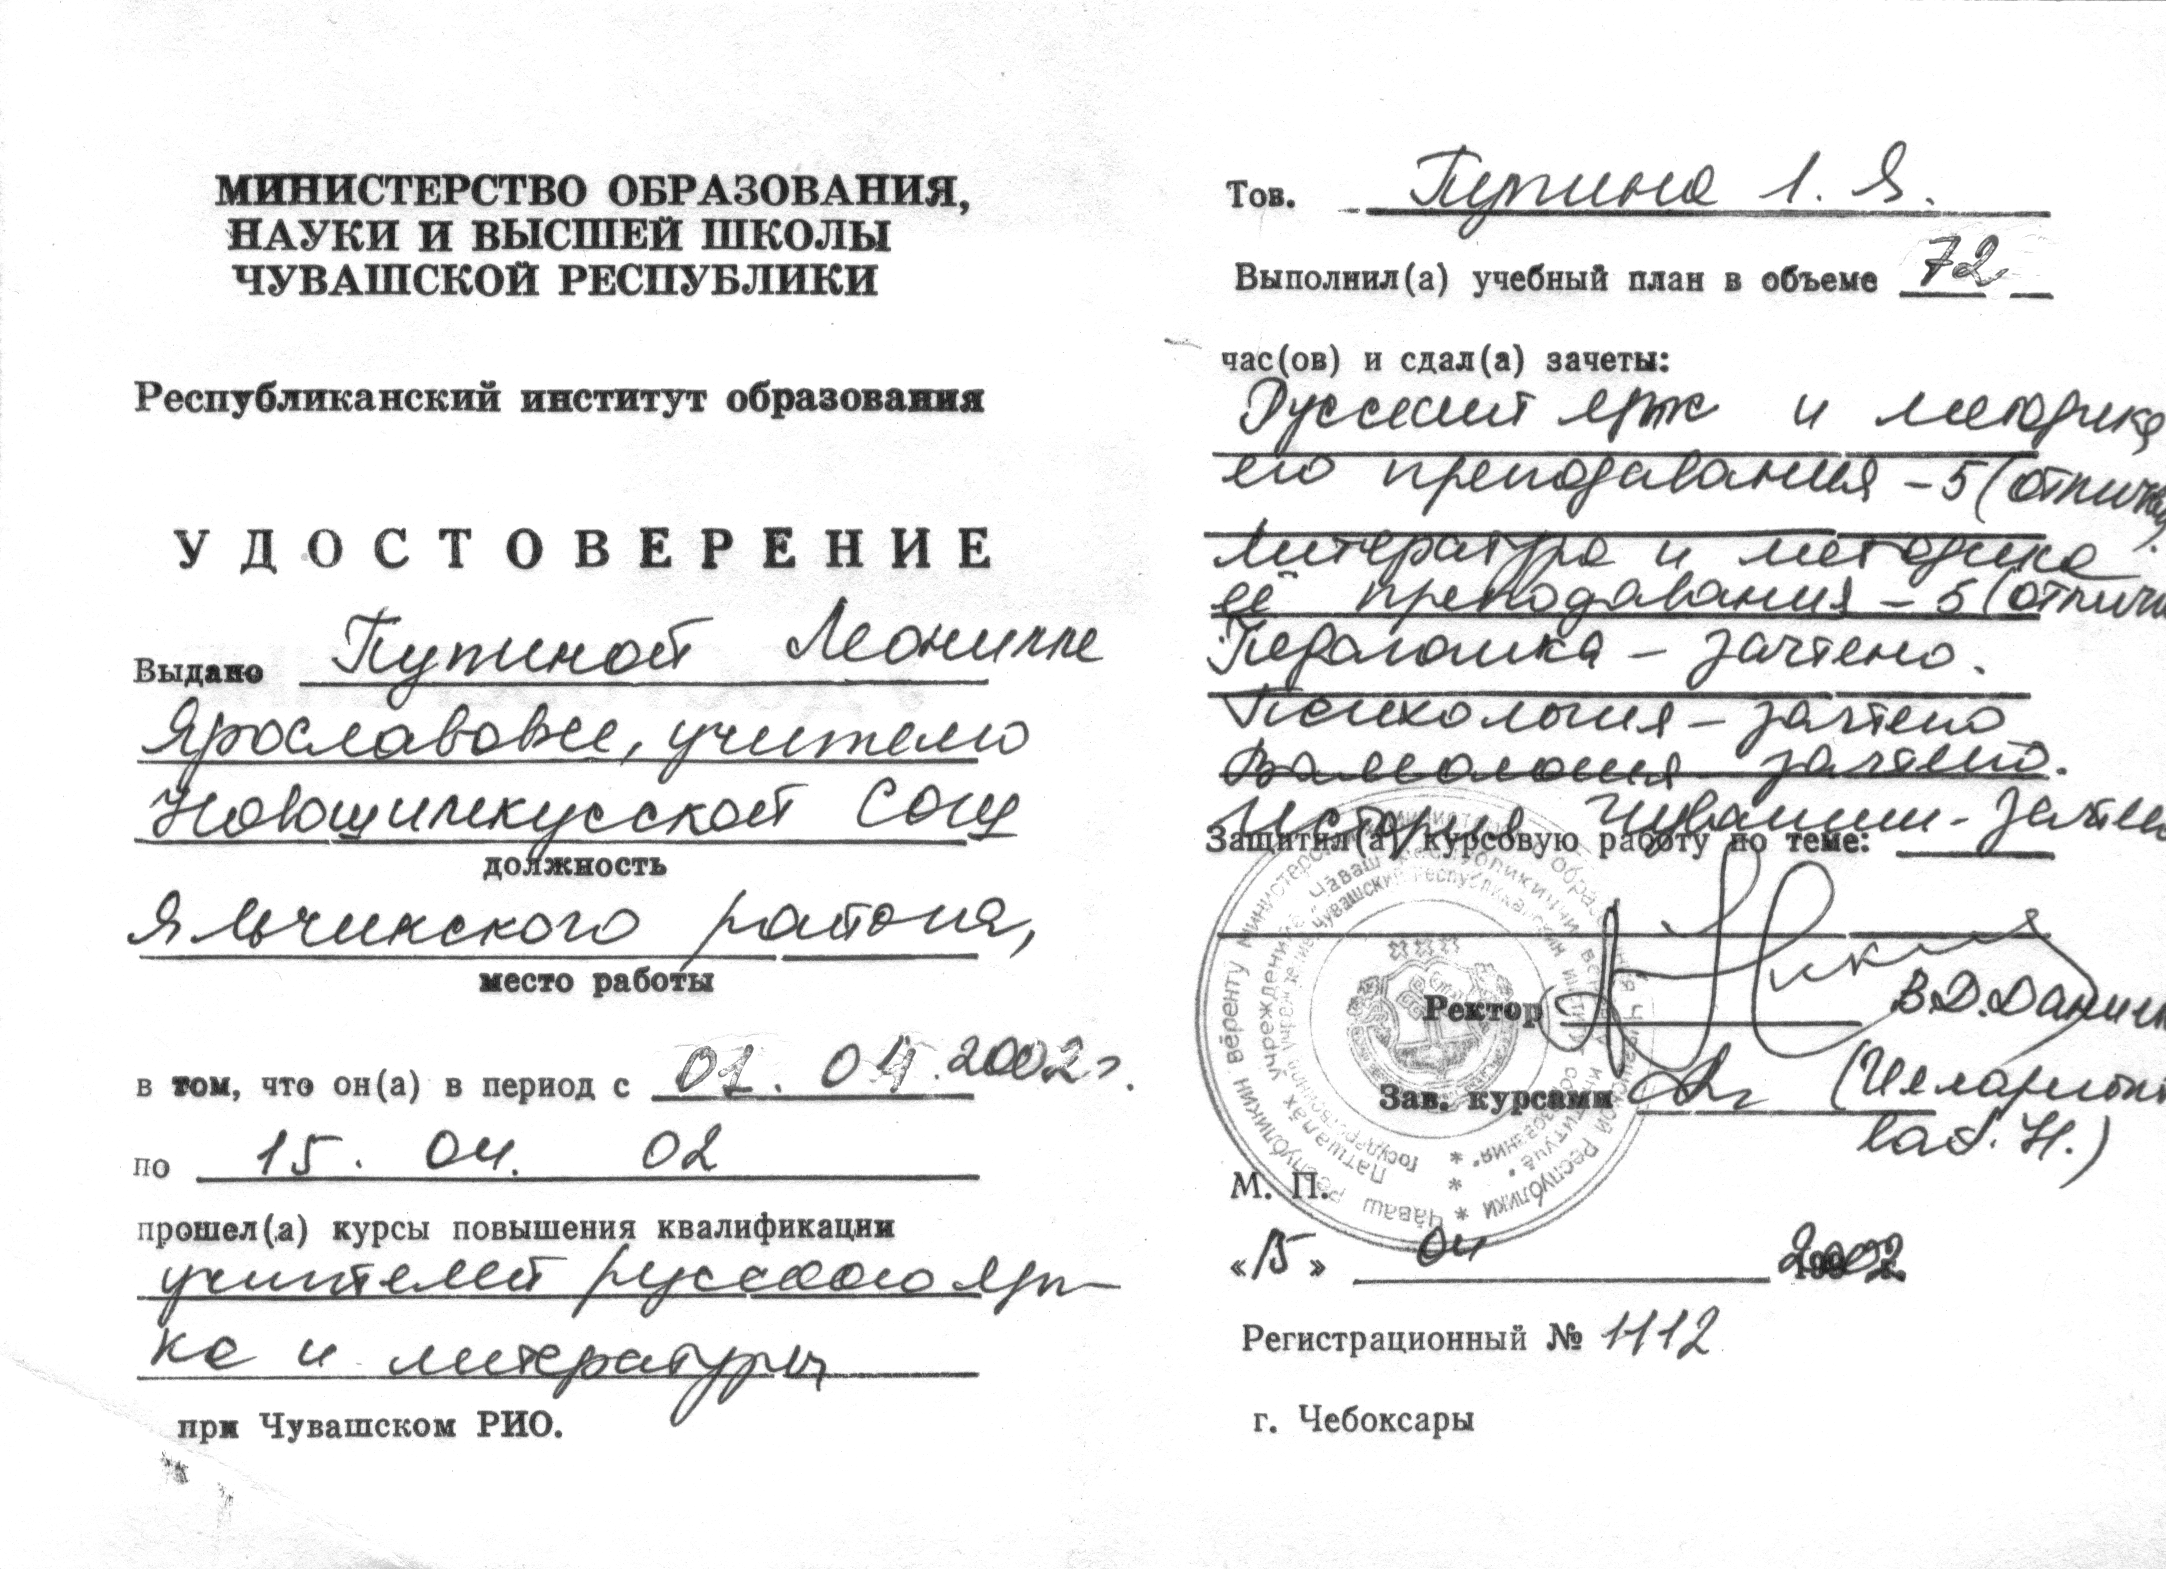 МИНИСТЕРСТВО ОБРАЗОВАНИЯ,
НАУКИ И ВЫСШЕЙ ШКОЛЫ
ЧУВАШСКОЙ РЕСПУБЛИКИ
Республиканский институт образования
УДОСТОВЕРЕНИЕ
Выдано Пупиной Леонилле
Ярославовне, учителю
Новошимкусской СОШ
должность
Яльчикского района,
место работы
в том, что он(а) в период с 01. 04. 2002 г.
по 15. 04. 02
прошел(а) курсы повышения квалификации
учителей русского язы-
ка и литературы
при Чувашском РИО.
Тов. Пупина Л. Я.
Выполнил(а) учебный план в объеме 72
час(ов) и сдал(а) зачеты:
Русский язык и методика
его преподавания – 5 (отлично).
Литература и методика
её преподавания – 5 (отличн
Педагогика – зачтено.
Психология – зачтено
Валеология зачтено.
История Чувашии – зачтено
Защитил(а) курсовую работу по теме:
Ректор В.Д. Данил
Зав. курсами
М. П.
«15» 04 2002
Регистрационный № 1112
г. Чебоксары